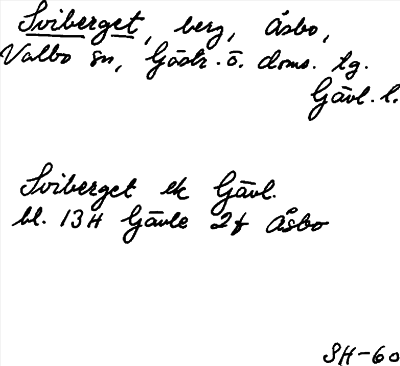 Sviberget, berg, Åsbo,
Valbo sn, Gästr. ö. doms. tg.
Gävl. l.
Sviberget ek Gävl.
bl. 13H Gävle 2f Åsbo
SH-60